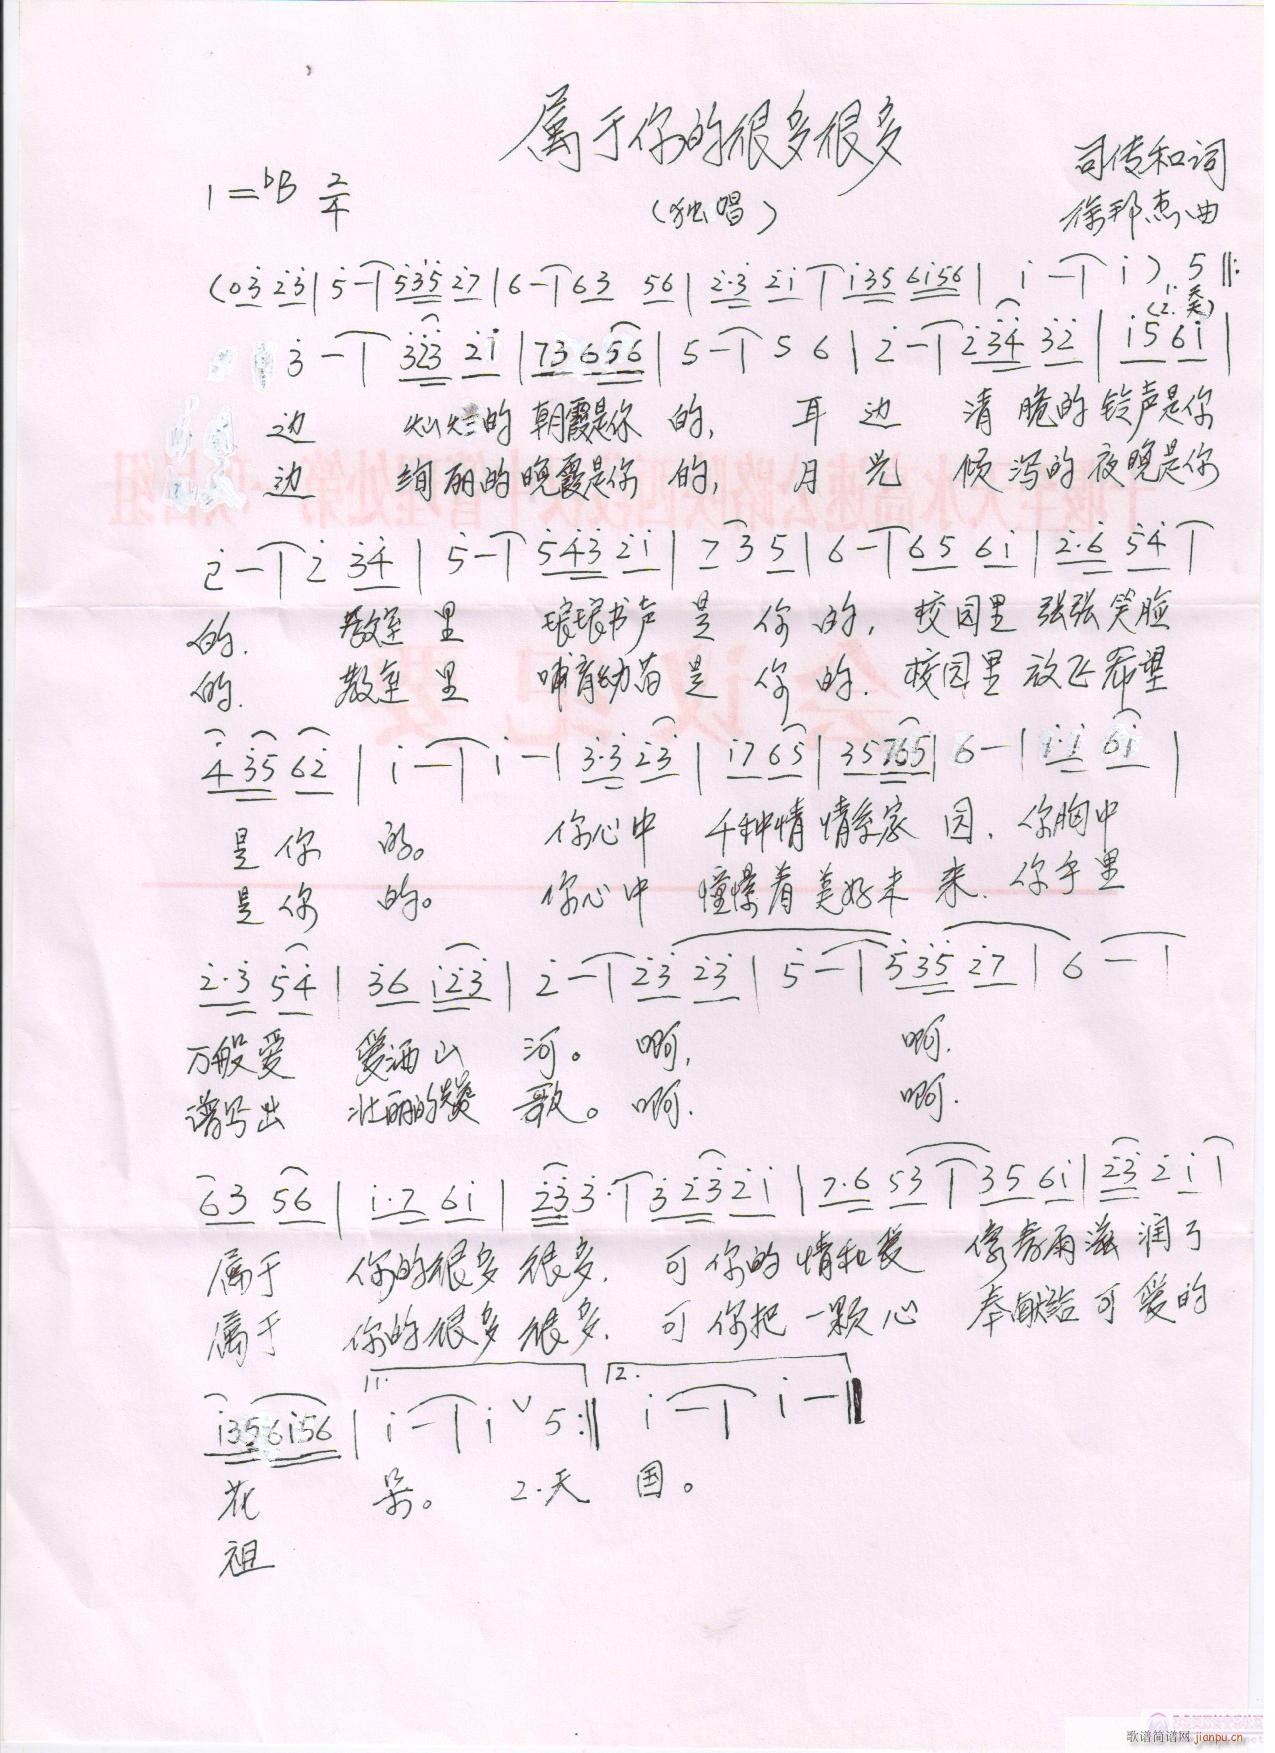 属于你的很多很多
1=♭B 2/4
(独唱)
司传和词
徐邦杰曲
(03 23|5-|535 27|6-|63 56|2·3 21|135 6156|1-|1) 5‖:
1. 天
(2. 天)
3-|323 21|73 656|5-|5 6|2-|234 32|15 61|
边 灿烂的朝霞是你的, 耳边 清脆的铃声是你
边 绚丽的晚霞是你的, 月光 倾泻的夜晚是你
2-|2 34|5-|543 21|7 3 5|6-|65 61|2·6 54|
的. 教室里 琅琅书声是你的, 校园里张张笑脸
的. 教室里 哺育幼苗是你的. 校园里放飞希望
435 62|1-|1-|3·3 23|17 65|35 765|6-|1·1 61|
是你的。 你心中 千种情情系家园. 你胸中
是你的。 你心中 憧憬着美好未来. 你手里
2·3 54|36 123|2-|23 23|5-|535 27|6-|
万般爱 爱洒山河。啊, 啊.
谱写出 壮丽的赞歌。啊. 啊.
63 56|1·7 61|233·|323 21|7·6 53|35 61|23 21|
属于 你的很多很多. 可你的情和爱 像春雨滋润了
属于 你的很多很多. 可你把一颗心 奉献给可爱的
1356156|1.1-|1 ˅ 5:‖2.1-|1-‖
花 朵。 2.天 国。
祖
歌谱简谱网 jianpu.cn